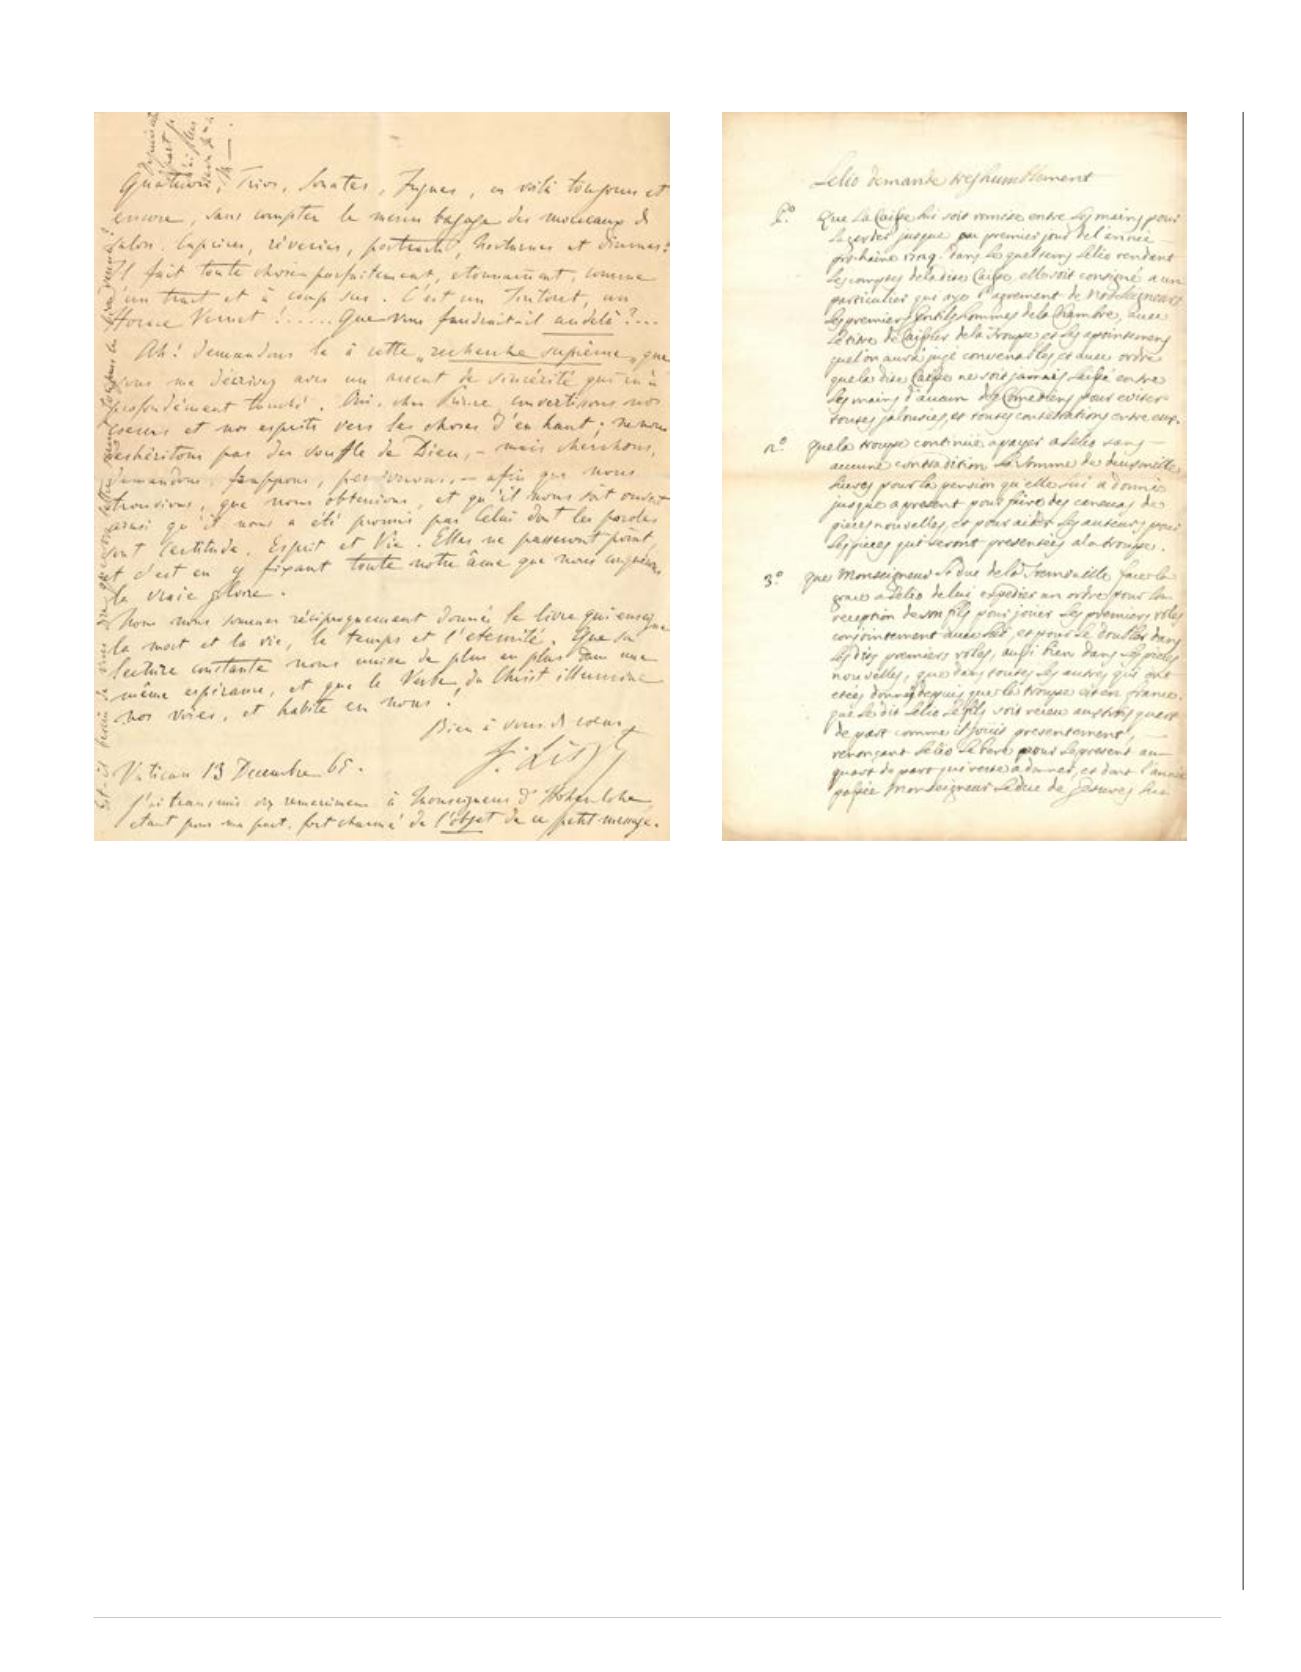 Quatuors, Trios, Sonates, Fugues, en voilà toujours et
encore, sans compter le menu bagage des morceaux de
salon, Caprices, rêveries, portraits, Nocturnes et diurnes!
Il fait toute chose parfaitement, etonnament, comme
d'un trait et à coup sur. C'est un Tintoret, un
Horace Vernet !..... Que vous faudrait-il au delà ?...
Ah! demandons le à cette „recherche suprême„ que
vous me décrivez avec un accent de sincérité qui m'a
profondément touché. Oui, cher Prince, convertissons nos
coeurs et nos esprits vers les choses d'en haut; ne nous
deshéritons pas du souffle de Dieu, – mais cherchons,
demandons, frappons, – afin que nous
trouvions, que nous obtenions, et qu'il nous soit ouvert
ainsi qu'il nous a été promis par Celui dont les paroles
sont Certitude, Esprit et Vie. Elles ne passeront point,
et c'est en y fixant toute notre âme que nous
la vraie gloire.
Nous nous sommes réciproquement donné le livre qui enseigne
la mort et la vie, le temps et l'eternité. Que sa
lecture constante nous unisse de plus en plus dans une
même espérance, et que le Verbe du Christ illumine
nos voies, et habite en nous!
Bien à vous de coeur,
F. Liszt
Vatican 13 Decembre 65.
J'ai transmis vos remerciemens à Monseigneur d'Hohenlohe,
etant pour ma part, fort charmé de l'objet de ce petit message.
Lelio demande tres humblement
Que la Caisse lui soit remise entre les mains pour
la garder jusque au premier jour de l'année
prochaine dans le quel tems Lélio rendant
les comptes de la dite Caisse, elle soit consigné a un
particulier qui aye l'agrement de Nosseigneurs
les premiers Gentilshommes de la Chambre, avec
le titre de Caissier de la Troupe et les apointements
quel'on aura jugé convenables, et avec ordre
que la dite Caisse ne soit jamais laissé entre
les mains d'aucun des Comediens pour eviter
toutes jalousies, et toutes contestations entre eux.
2º. que la troupe continue a payer a Lelio sans
aucune contradition la somme de deux mille
livres pour la pension qu'elle lui a donné
jusque a present pour faire des canevas de
pieces nouvelles, et pour aider les auteurs pour
les pieces qui seront presentées a la troupe.
3º. que Monseigneur le duc de la Tremouille fasse la
grace a Lelio de lui expedier un ordre pour la
reception de son fils pour jouer les premiers rôles
conjointement avec lui, et pour le doubler dans
les dits premiers roles, aussi bien dans les pieces
nouvelles, que dans toutes les autres qui ont
etées données depuis que la troupe est en france.
que le dit Lelio le fils soit receu aux trois quart
de part comme il jouit presentement,
renonçant Lelio le Pere pour le present au
quart de part qui reste a donner, et dont l'année
passée Monseigneur le duc de Gesvres